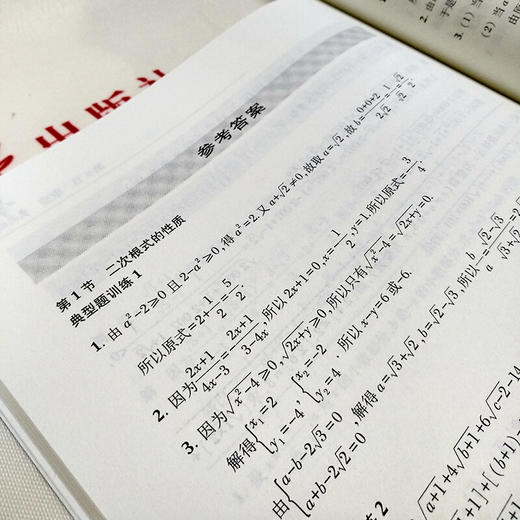 出版社
2. 由
于是
3. (1) 当
(2) 当a
参考答案
第1节 二次根式的性质
典型题训练1
1. 由 a²-2≥0 且 2-a²≥0, 得 a²=2. 又 a+√2≠0, 故取 a=√2, 故 b=(0+0+2)/(2√2)=1/√2=√2/2,
所以原式=2+1/2=5/2.
2. 因为 (2x+1)/(4x-3)=(2x+1)/(3-4x), 所以 2x+1=0, x=-1/2, y=1. 所以原式=3/4.
3. 因为 √(x²-4)≥0, √(2x+y)≥0, 所以只有 √(x²-4)=√(2x+y)=0.
解得 {x₁=2 y₁=-4, {x₂=-2 y₂=4. 所以 x-y=6 或 -6.
由 {a-b-2√3=0 a+b-2√2=0, 解得 a=√3+√2, b=√2-√3, 所以 b/a=(√2-√3)/(√3+√2)
2
√(a+1)+4√(b+1)+6√(c-2)-14
+1]+[(b+1)